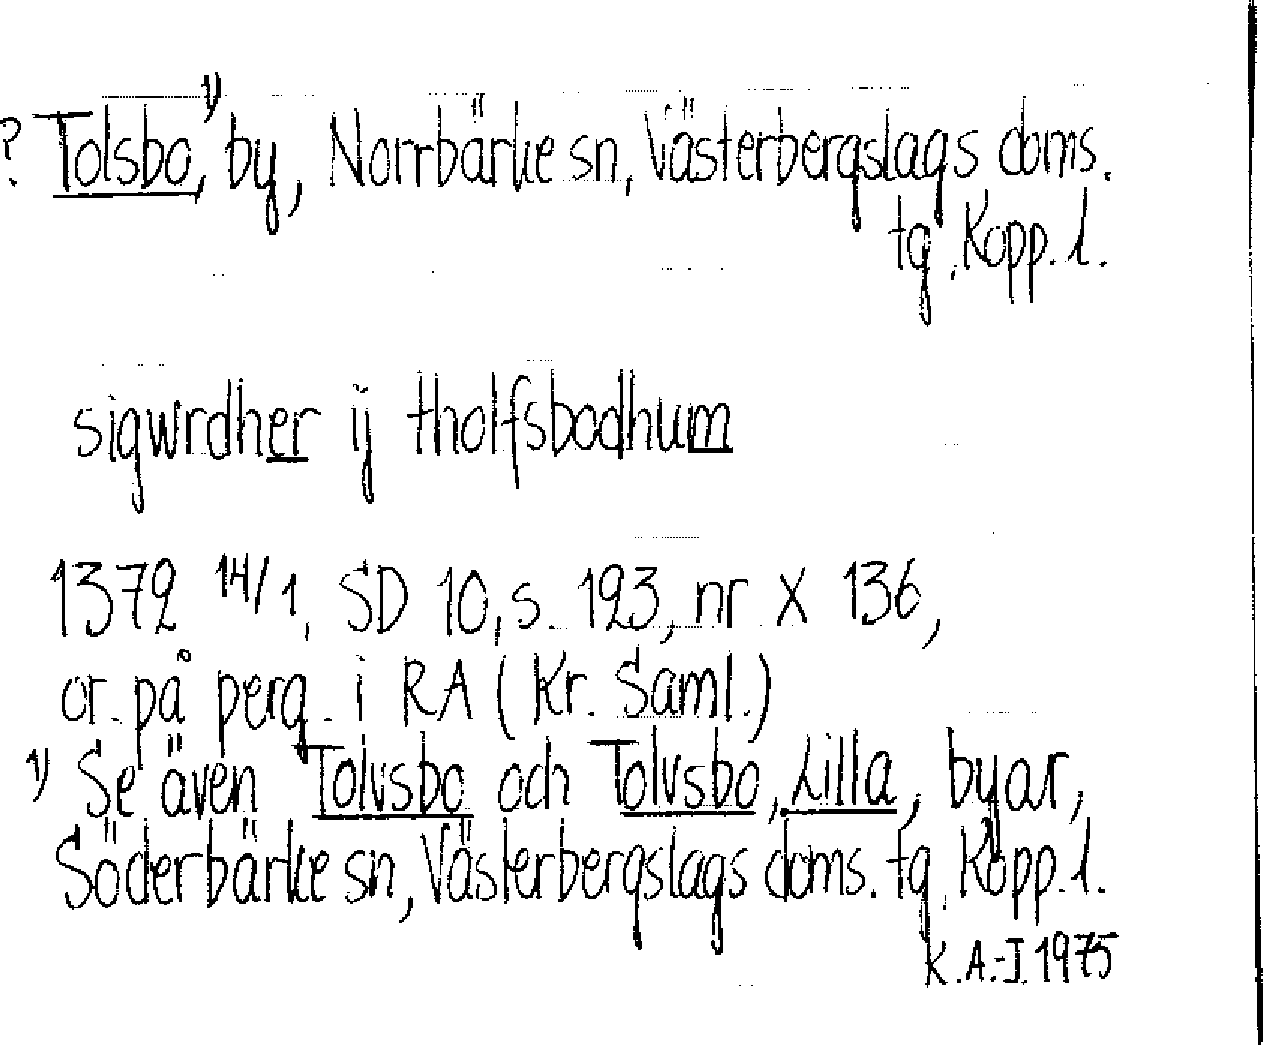 ? Tolsbo,¹⁾ by, Norrbärke sn, Västerbergslags doms.
tg, Kopp. l.
sigwrdher ij tholfsbodhum
1372 14/1, SD 10, s. 123, nr X 136,
or. på perg. i RA (Kr. Saml.)
¹⁾ Se även Tolvsbo och Tolvsbo, Lilla, byar,
Söderbärke sn, Västerbergslags doms. tg, Kopp. l.
K.A.-I. 1975